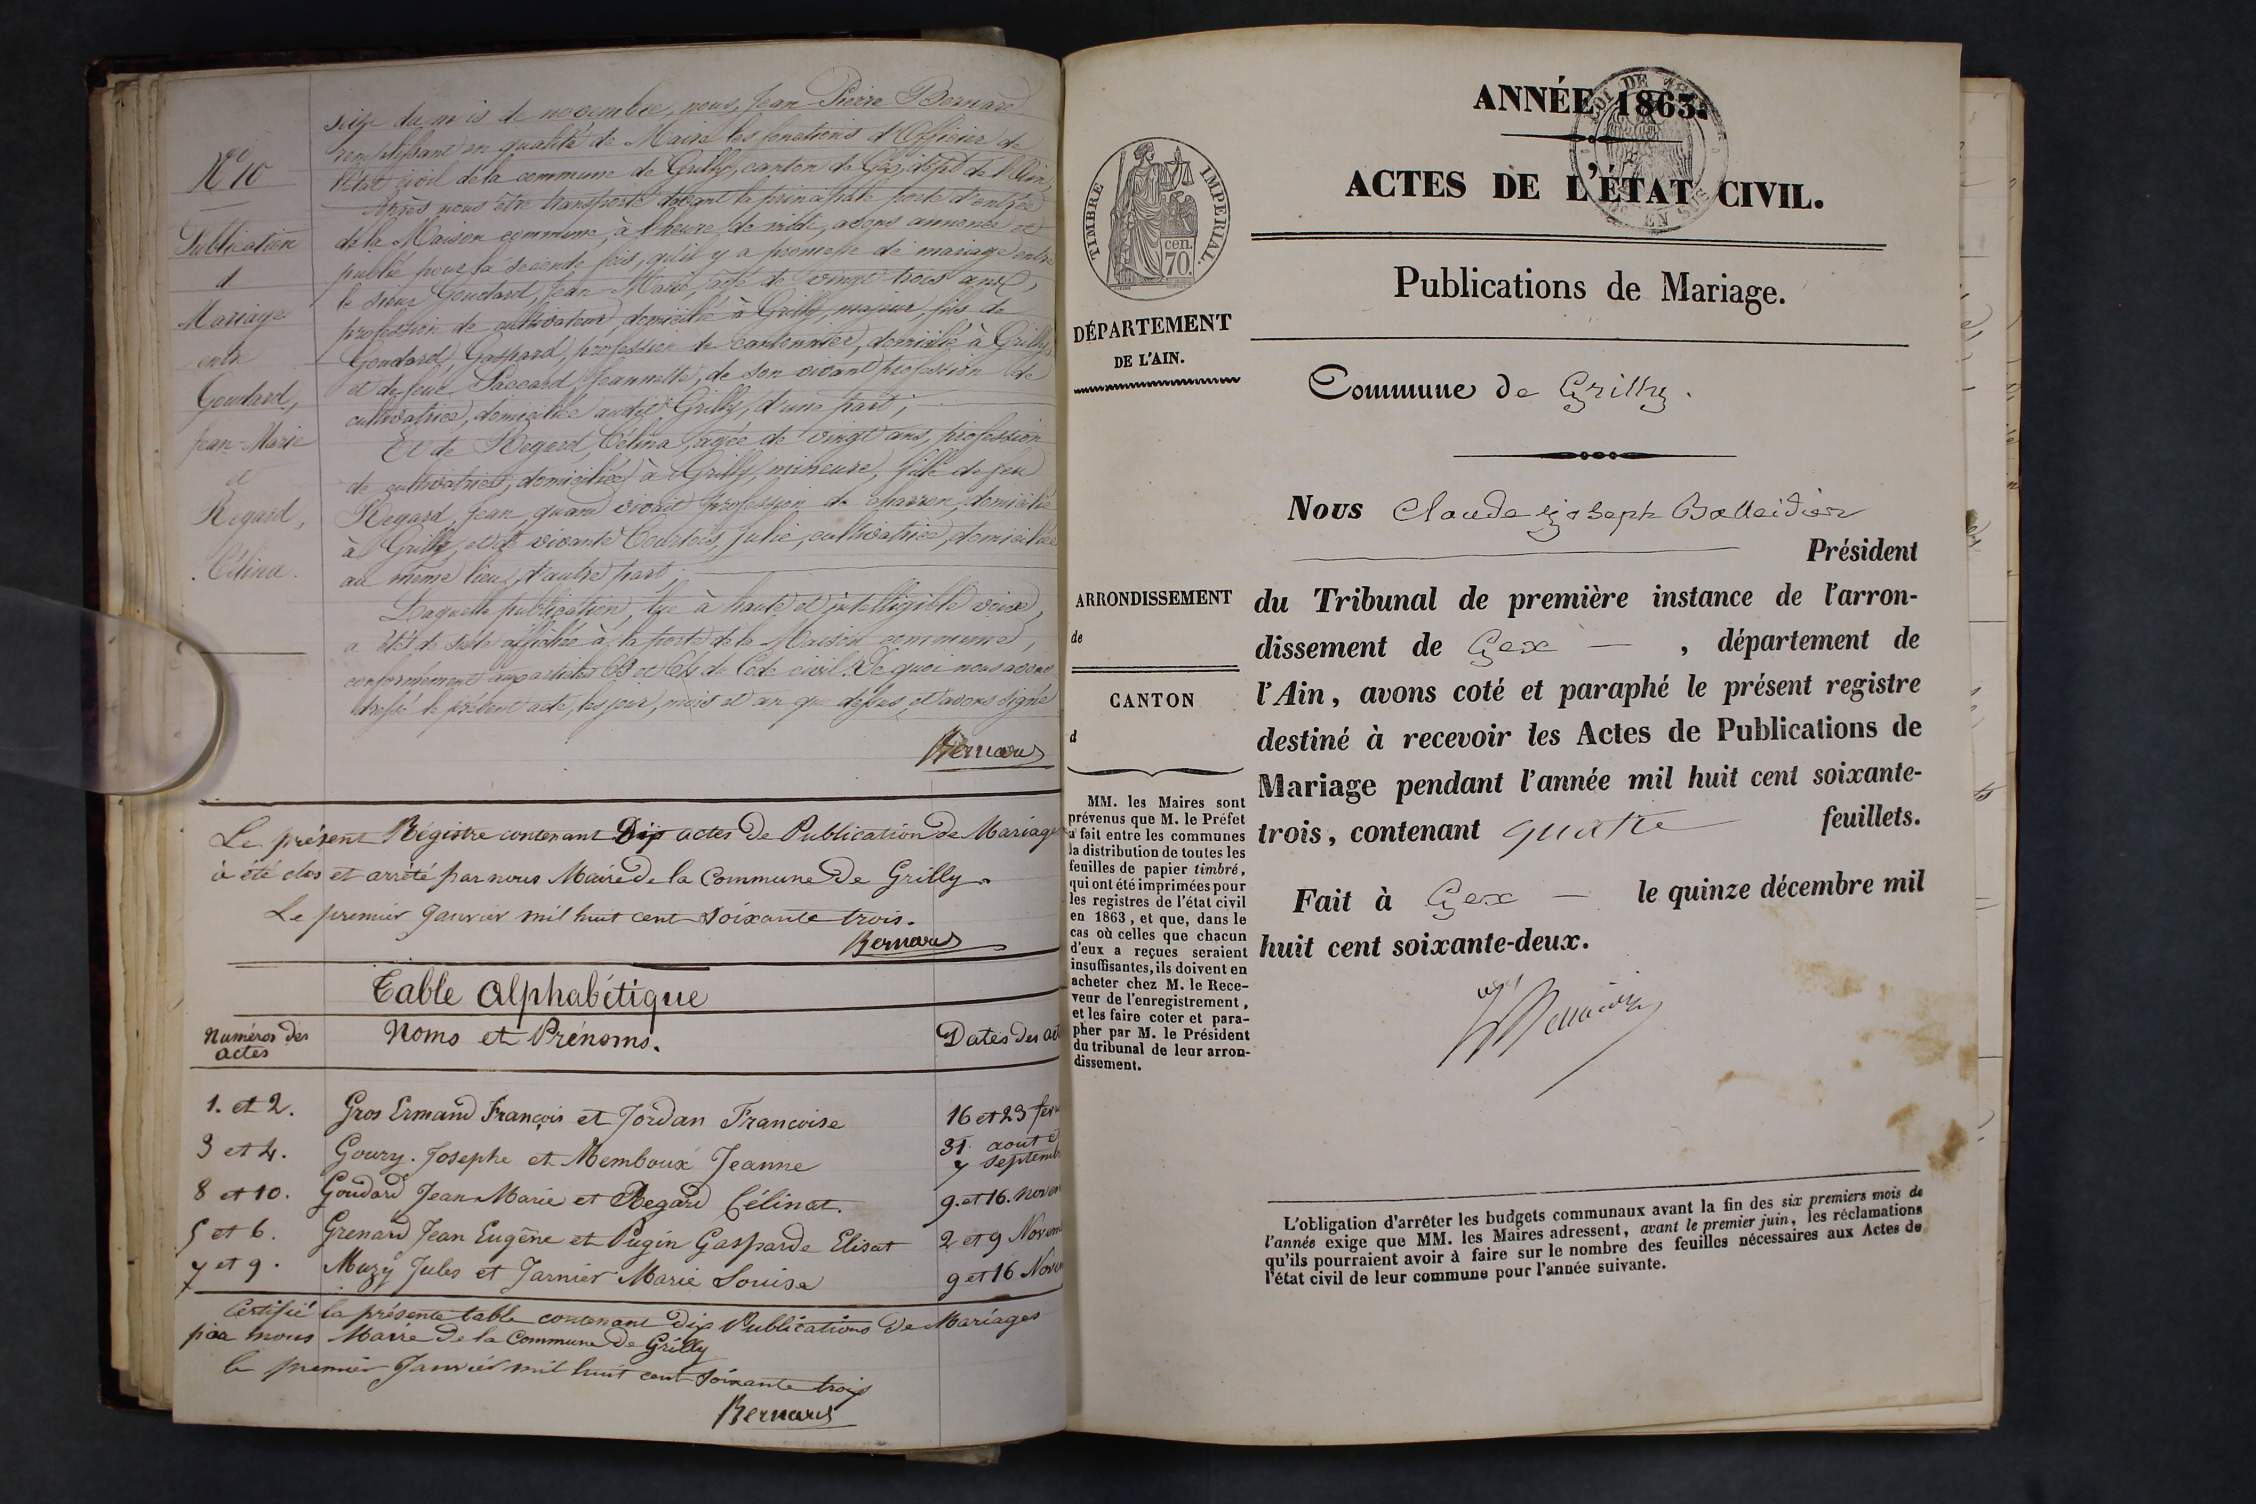 seize du mois de novembre, nous, Jean Pierre Bernard
remplissant en qualité de Maire les fonctions d'Officier de
l'état civil de la commune de Grilly, canton de Gex, dépt de l'Ain,
Après nous être transporté devant la principale porte d'entrée
de la Maison commune, à l'heure de midi, avons annoncé et
publié pour la seconde fois, qu'il y a promesse de mariage entre
le sieur Goudard, Jean-Marie, âgé de vingt trois ans,
profession de cultivateur, domicilié à Grilly, majeur, fils de
Goudard, Gaspard, profession de cantonnier, domicilié à Grilly,
et de feue Saccard, Jeannette, de son vivant profession de
cultivatrice, domiciliée audit Grilly, d'une part;
Et de Regard, Célina, agée de vingt ans, profession
de cultivatrice, domiciliée à Grilly, mineure, fille de feu
Regard, Jean, quand vivait profession de charron, domicilié
à Grilly, et de vivante Courtois, Julie, cultivatrice, domiciliée
au même lieu, d'autre part;
Laquelle publication, lue à haute et intelligible voix,
a été de suite affichée à la porte de la Maison commune,
conformément aux articles 63 et 64 du Code civil. De quoi nous avons
dressé le présent acte, les jour, mois et an que dessus, et avons signé
Bernard
No 10
Publication
d
Mariage
entre
Goudard,
Jean-Marie
et
Regard,
Célina.
Le présent Régistre contenant Dix actes de Publication de Mariage
à été clos et arrété par nous Maire de la Commune de Grilly.
Le premier Janvier mil huit cent soixante trois.
Bernard
Table Alphabétique
Numéros des actes Noms et Prénoms. Dates des act
1. et 2. Gros Ermand François et Jordan Francoise 16 et 23 fevr
3 et 4. Goury. Josephe et Memboux Jeanne 31. aout et 7 septemb
8 et 10. Goudard Jean Marie et Regard Célinat. 9. et 16. Novem
5 et 6. Grenard Jean Eugène et Pugin Gasparde Elisat 2 et 9 Novem
7 et 9. Muzy Jules et Jarnier Marie Louise 9 et 16 Novem
Certifié la présente table contenant dix Publications de Mariages
par nous Maire de la Commune de Grilly
le premier Janvier mil huit cent soixante trois
Bernard
ANNÉE 1863.
ACTES DE L'ÉTAT CIVIL.
Publications de Mariage.
TIMBRE IMPERIAL.
cen.
70.
DÉPARTEMENT
DE L'AIN.
Commune de Grilly.
Nous Claude Joseph Balleidier
Président
du Tribunal de première instance de l'arron-
dissement de Gex — , département de
l'Ain, avons coté et paraphé le présent registre
destiné à recevoir les Actes de Publications de
Mariage pendant l'année mil huit cent soixante-
trois, contenant quatre feuillets.
Fait à Gex — le quinze décembre mil
huit cent soixante-deux.
ARRONDISSEMENT
de
CANTON
d
MM. les Maires sont
prévenus que M. le Préfet
a fait entre les communes
la distribution de toutes les
feuilles de papier timbré,
qui ont été imprimées pour
les registres de l'état civil
en 1863, et que, dans le
cas où celles que chacun
d'eux a reçues seraient
insuffisantes, ils doivent en
acheter chez M. le Rece-
veur de l'enregistrement,
et les faire coter et para-
pher par M. le Président
du tribunal de leur arron-
dissement.
L'obligation d'arrêter les budgets communaux avant la fin des six premiers mois de
l'année exige que MM. les Maires adressent, avant le premier juin, les réclamations
qu'ils pourraient avoir à faire sur le nombre des feuilles nécessaires aux Actes de
l'état civil de leur commune pour l'année suivante.